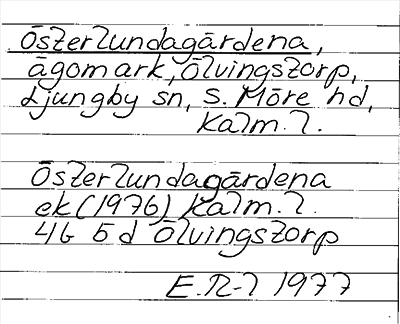 Österlundagärdena,
ägomark, Ölvingstorp,
Ljungby sn, S. Möre hd,
Kalm. l.
Österlundagärdena
ek (1976) Kalm. l.
4G 5d Ölvingstorp
E.R-l 1977